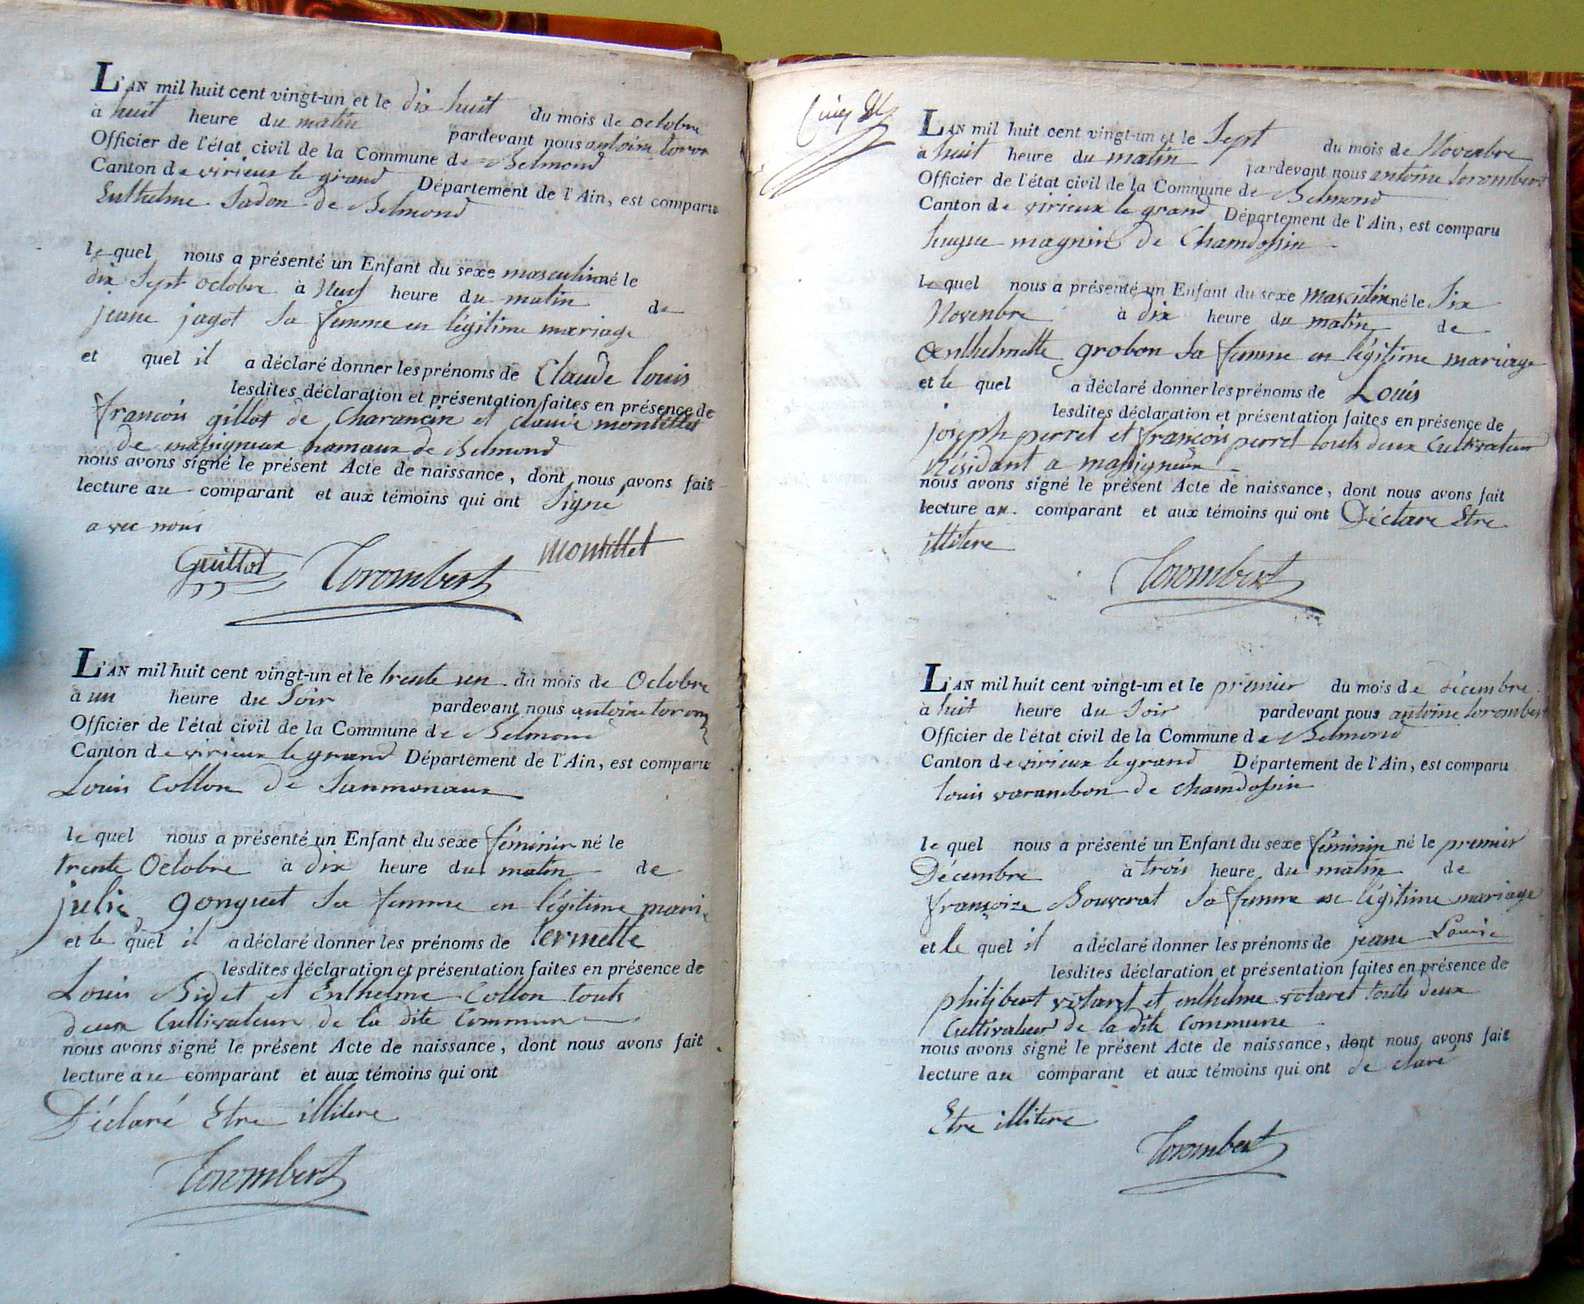 L'AN mil huit cent vingt-un et le dix huit du mois de octobre
à huit heure du matin pardevant nous antoine torom
Officier de l'état civil de la Commune de Belmond
Canton de virieux le grand Département de l'Ain, est comparu
Enthelme Jadon de Belmond
le quel nous a présenté un Enfant du sexe masculin né le
dix Sept octobre à Neuf heure du matin de
jeane jagot Sa femme en légitime mariage
et quel il a déclaré donner les prénoms de Claude Louis
lesdites déclaration et présentation faites en présence de
françois gillot de Charancin et claude montillet
de massigneux hamaux de Belmond
nous avons signé le présent Acte de naissance, dont nous avons fait
lecture au comparant et aux témoins qui ont Signé
avec nous
Guillot Torombert Montillet
L'AN mil huit cent vingt-un et le trente un du mois de Octobre
à un heure du Soir pardevant nous antoine torom
Officier de l'état civil de la Commune de Belmond
Canton de virieux le grand Département de l'Ain, est comparu
Louis Collon de Sanmonaux
le quel nous a présenté un Enfant du sexe féminin né le
trente Octobre à dix heure du matin de
julie gonguet Sa femme en légitime mari
et le quel il a déclaré donner les prénoms de termette
lesdites déclaration et présentation faites en présence de
Louis Bidet et Enthelme Collon touts
deux Cultivateur de la dite Commune
nous avons signé le présent Acte de naissance, dont nous avons fait
lecture au comparant et aux témoins qui ont
Déclaré Etre illitere
Torombert
L'AN mil huit cent vingt-un et le Sept du mois de Novenbre
à huit heure du matin pardevant nous antoine torombert
Officier de l'état civil de la Commune de Belmond
Canton de virieux le grand Département de l'Ain, est comparu
hugue magnin de Chamdossin
le quel nous a présenté un Enfant du sexe masculin né le Six
Novenbre à dix heure du matin de
Anthelmette grobon Sa femme en légitime mariage
et le quel a déclaré donner les prénoms de Louis
lesdites déclaration et présentation faites en présence de
joseph perret et françois perret touts deux Cultivateur
Résidant a massigneux
nous avons signé le présent Acte de naissance, dont nous avons fait
lecture au comparant et aux témoins qui ont Déclare Etre
illitere
Torombert
L'AN mil huit cent vingt-un et le premier du mois de décembre
à huit heure du Soir pardevant nous antoine torombert
Officier de l'état civil de la Commune de Belmond
Canton de virieux le grand Département de l'Ain, est comparu
louis varambon de chamdossin
le quel nous a présenté un Enfant du sexe féminin né le premier
Décembre à trois heure du matin de
françoize Bouverat Sa femme en légitime mariage
et le quel il a déclaré donner les prénoms de jeane Louise
lesdites déclaration et présentation faites en présence de
philibert votaret et enthelme votaret touts deux
Cultivateur de la dite Commune
nous avons signé le présent Acte de naissance, dont nous avons fait
lecture au comparant et aux témoins qui ont de claré
Etre illitere
Torombert